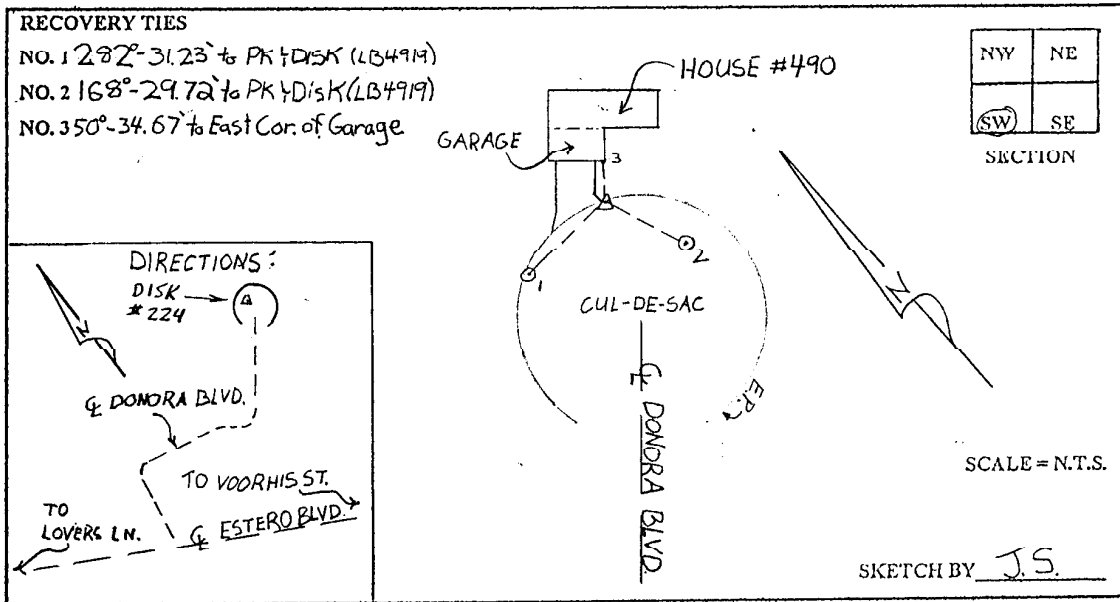 RECOVERY TIES
NO. 1 282°-31.23' to PK & DISK (LB4919)
NO. 2 168°-29.72' to PK & DISK (LB4919)
NO. 3 50°-34.67' to East Cor. of Garage
HOUSE #490
GARAGE
3
1
2
CUL-DE-SAC
℄ DONORA BLVD.
E.P.
N
NW NE
SW SE
SECTION
SCALE = N.T.S.
SKETCH BY J.S.
DIRECTIONS:
DISK
#224
N
℄ DONORA BLVD.
TO VOORHIS ST.
TO
LOVERS LN.
℄ ESTERO BLVD.